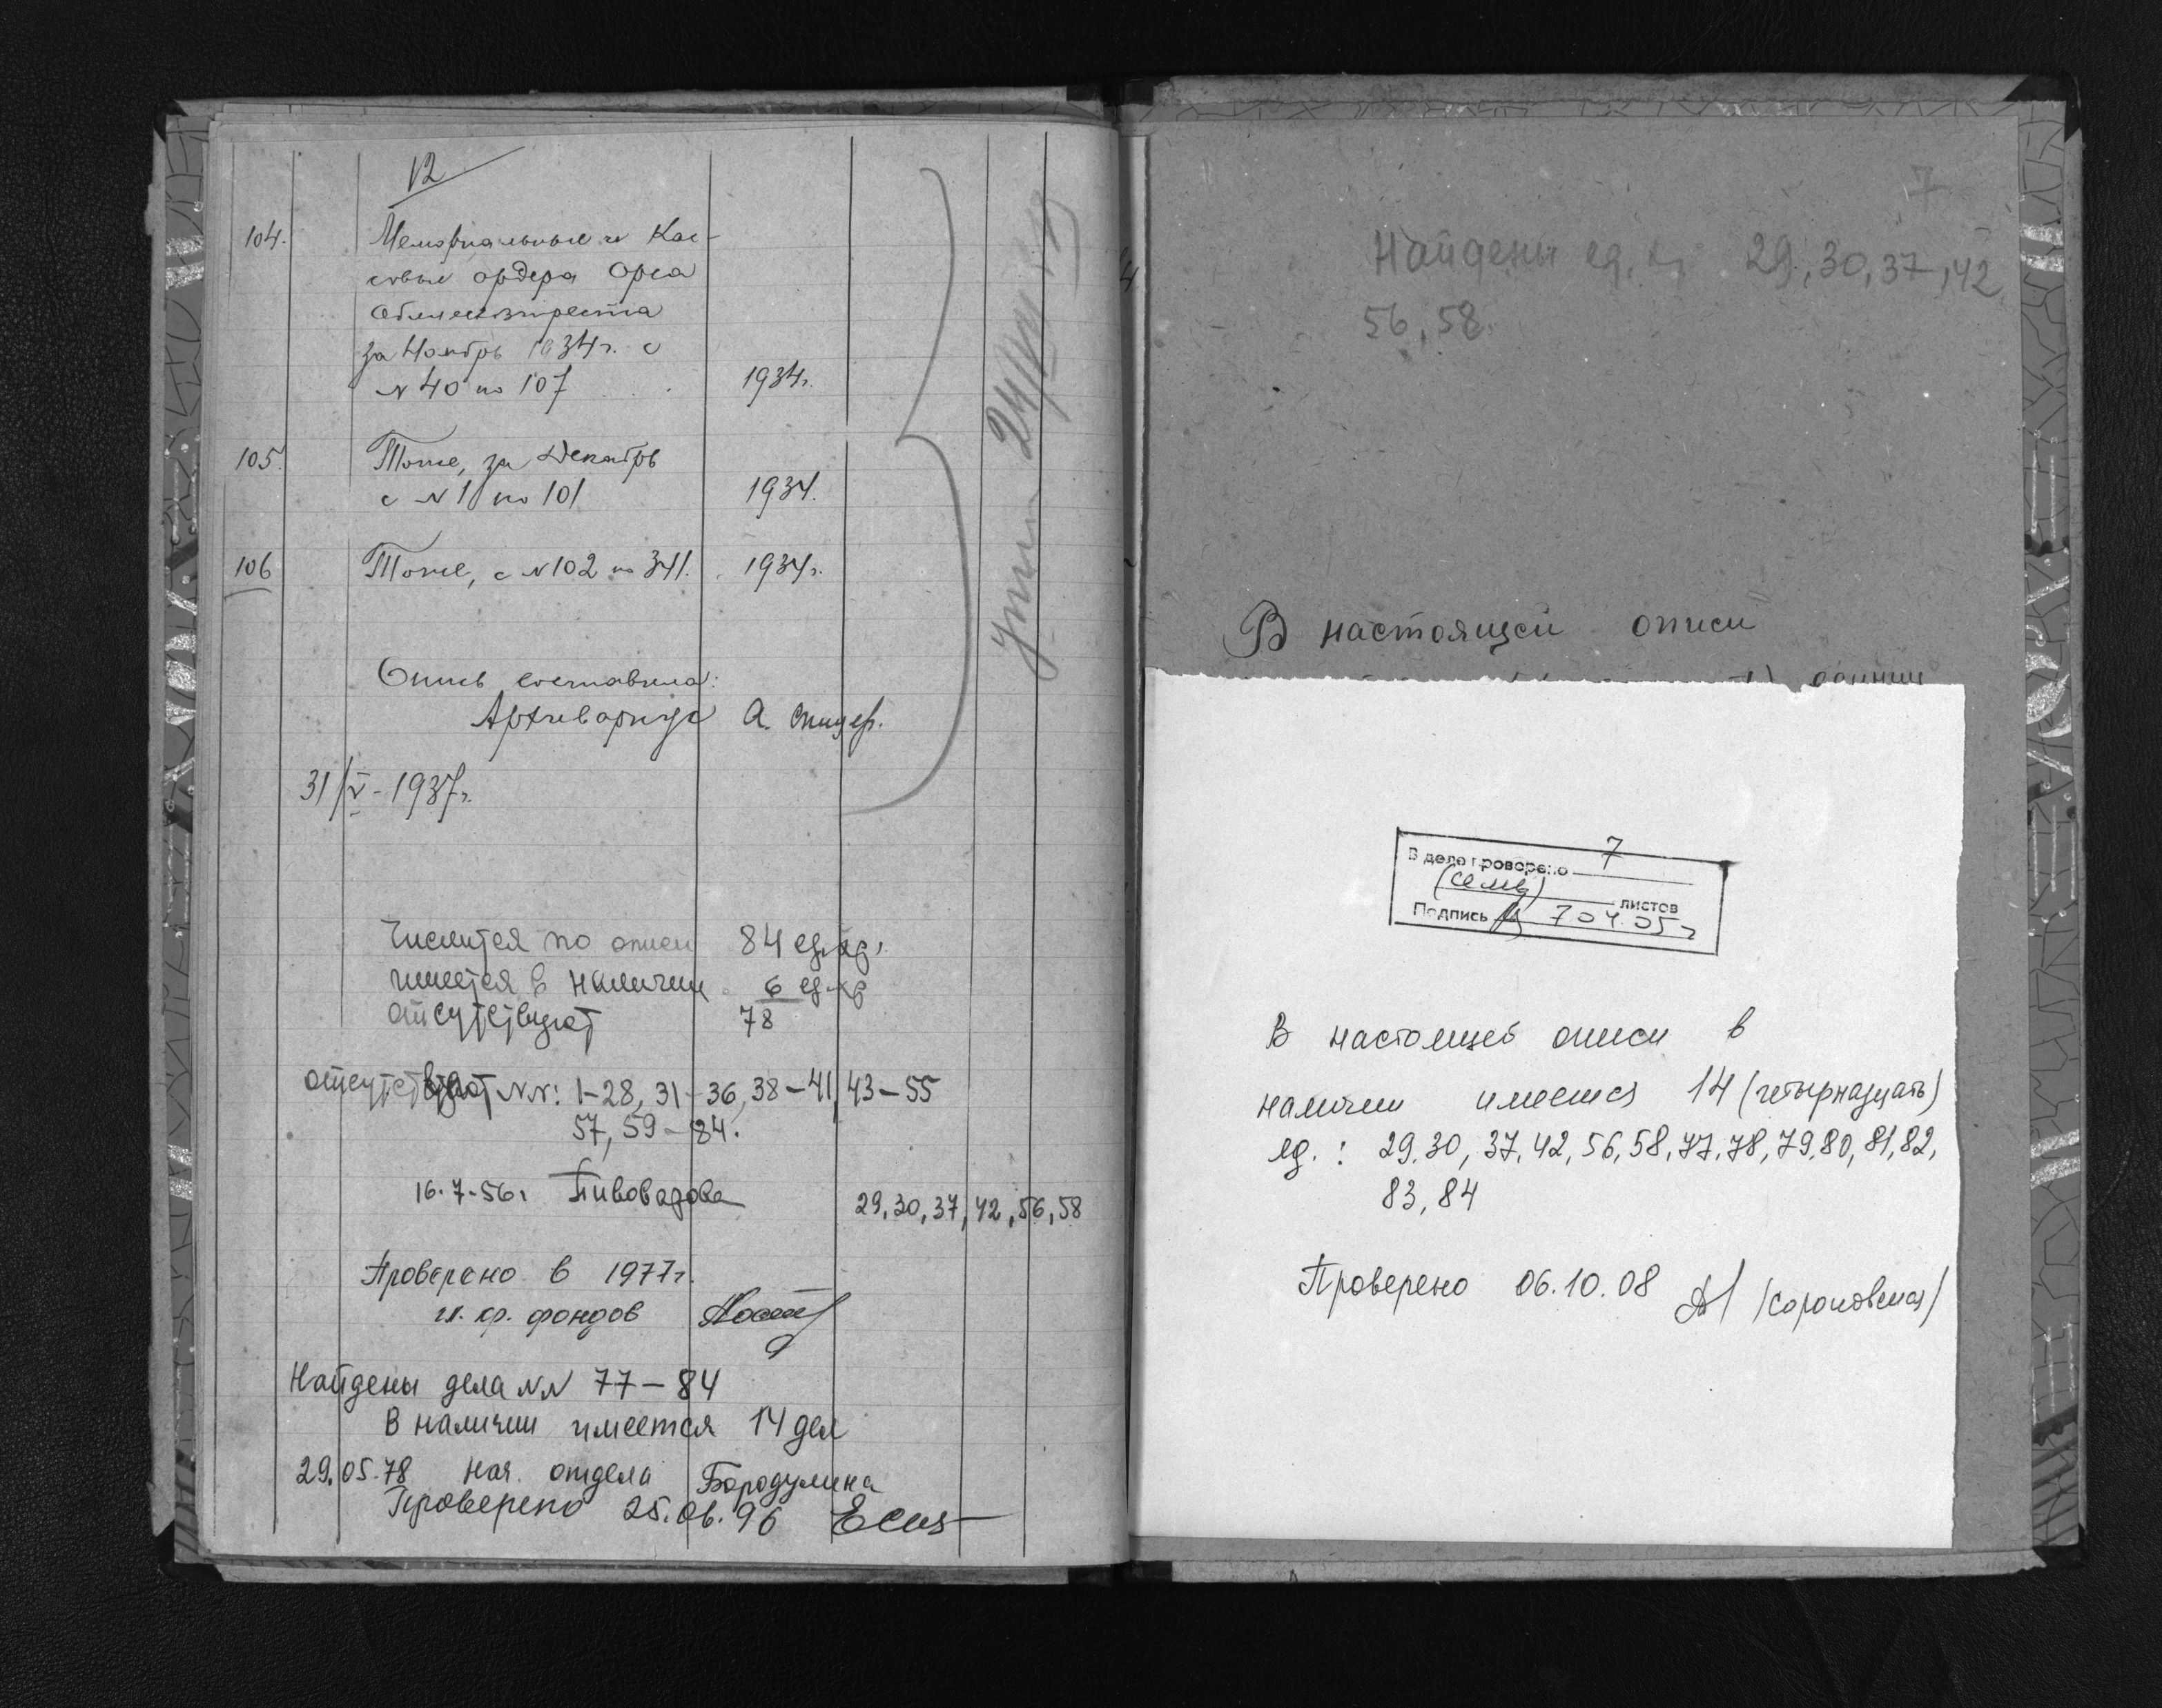 12
104. Мемориальные и Кас-
совые ордера Орса
Облместтреста
за Ноябрь 1934г. с
N 40 по 107 1934г.
105. Тоже, за Декабрь
с N 1 по 101 1934.
106 Тоже, с N 102 по 341. 1934г.
Опись составила:
Архивариус А.
31/V - 1937г.
Числится по описи 84 ед.хр.
имеется в наличии 6 ед.хр
отсутствуют 78
отсутствуют NN: 1-28, 31-36, 38-41, 43-55
57, 59-84.
16.7-56г Пивоварова
29,30,37,42,56,58
Проверено в 1977г.
гл. хр. фондов
Найдены дела NN 77-84
В наличии имеется 14 дел
29.05.78 нач. отдела Бородулина
Проверено 25.06.96
7
Найдены ед. хр 29,30,37,42
56,58.
В настоящей описи
единиц
В деле проверено 7
(семь) листов
Подпись 7 04.05г
В настоящей описи в
наличии имеется 14 (четырнадцать)
ед.: 29,30,37,42,56,58,77,78,79,80,81,82,
83,84
Проверено 06.10.08